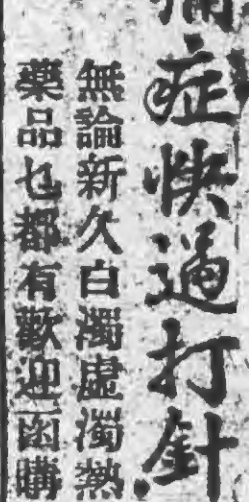 症快過打針
無論新久白濁虛濁熱
藥品乜都有歡迎函購